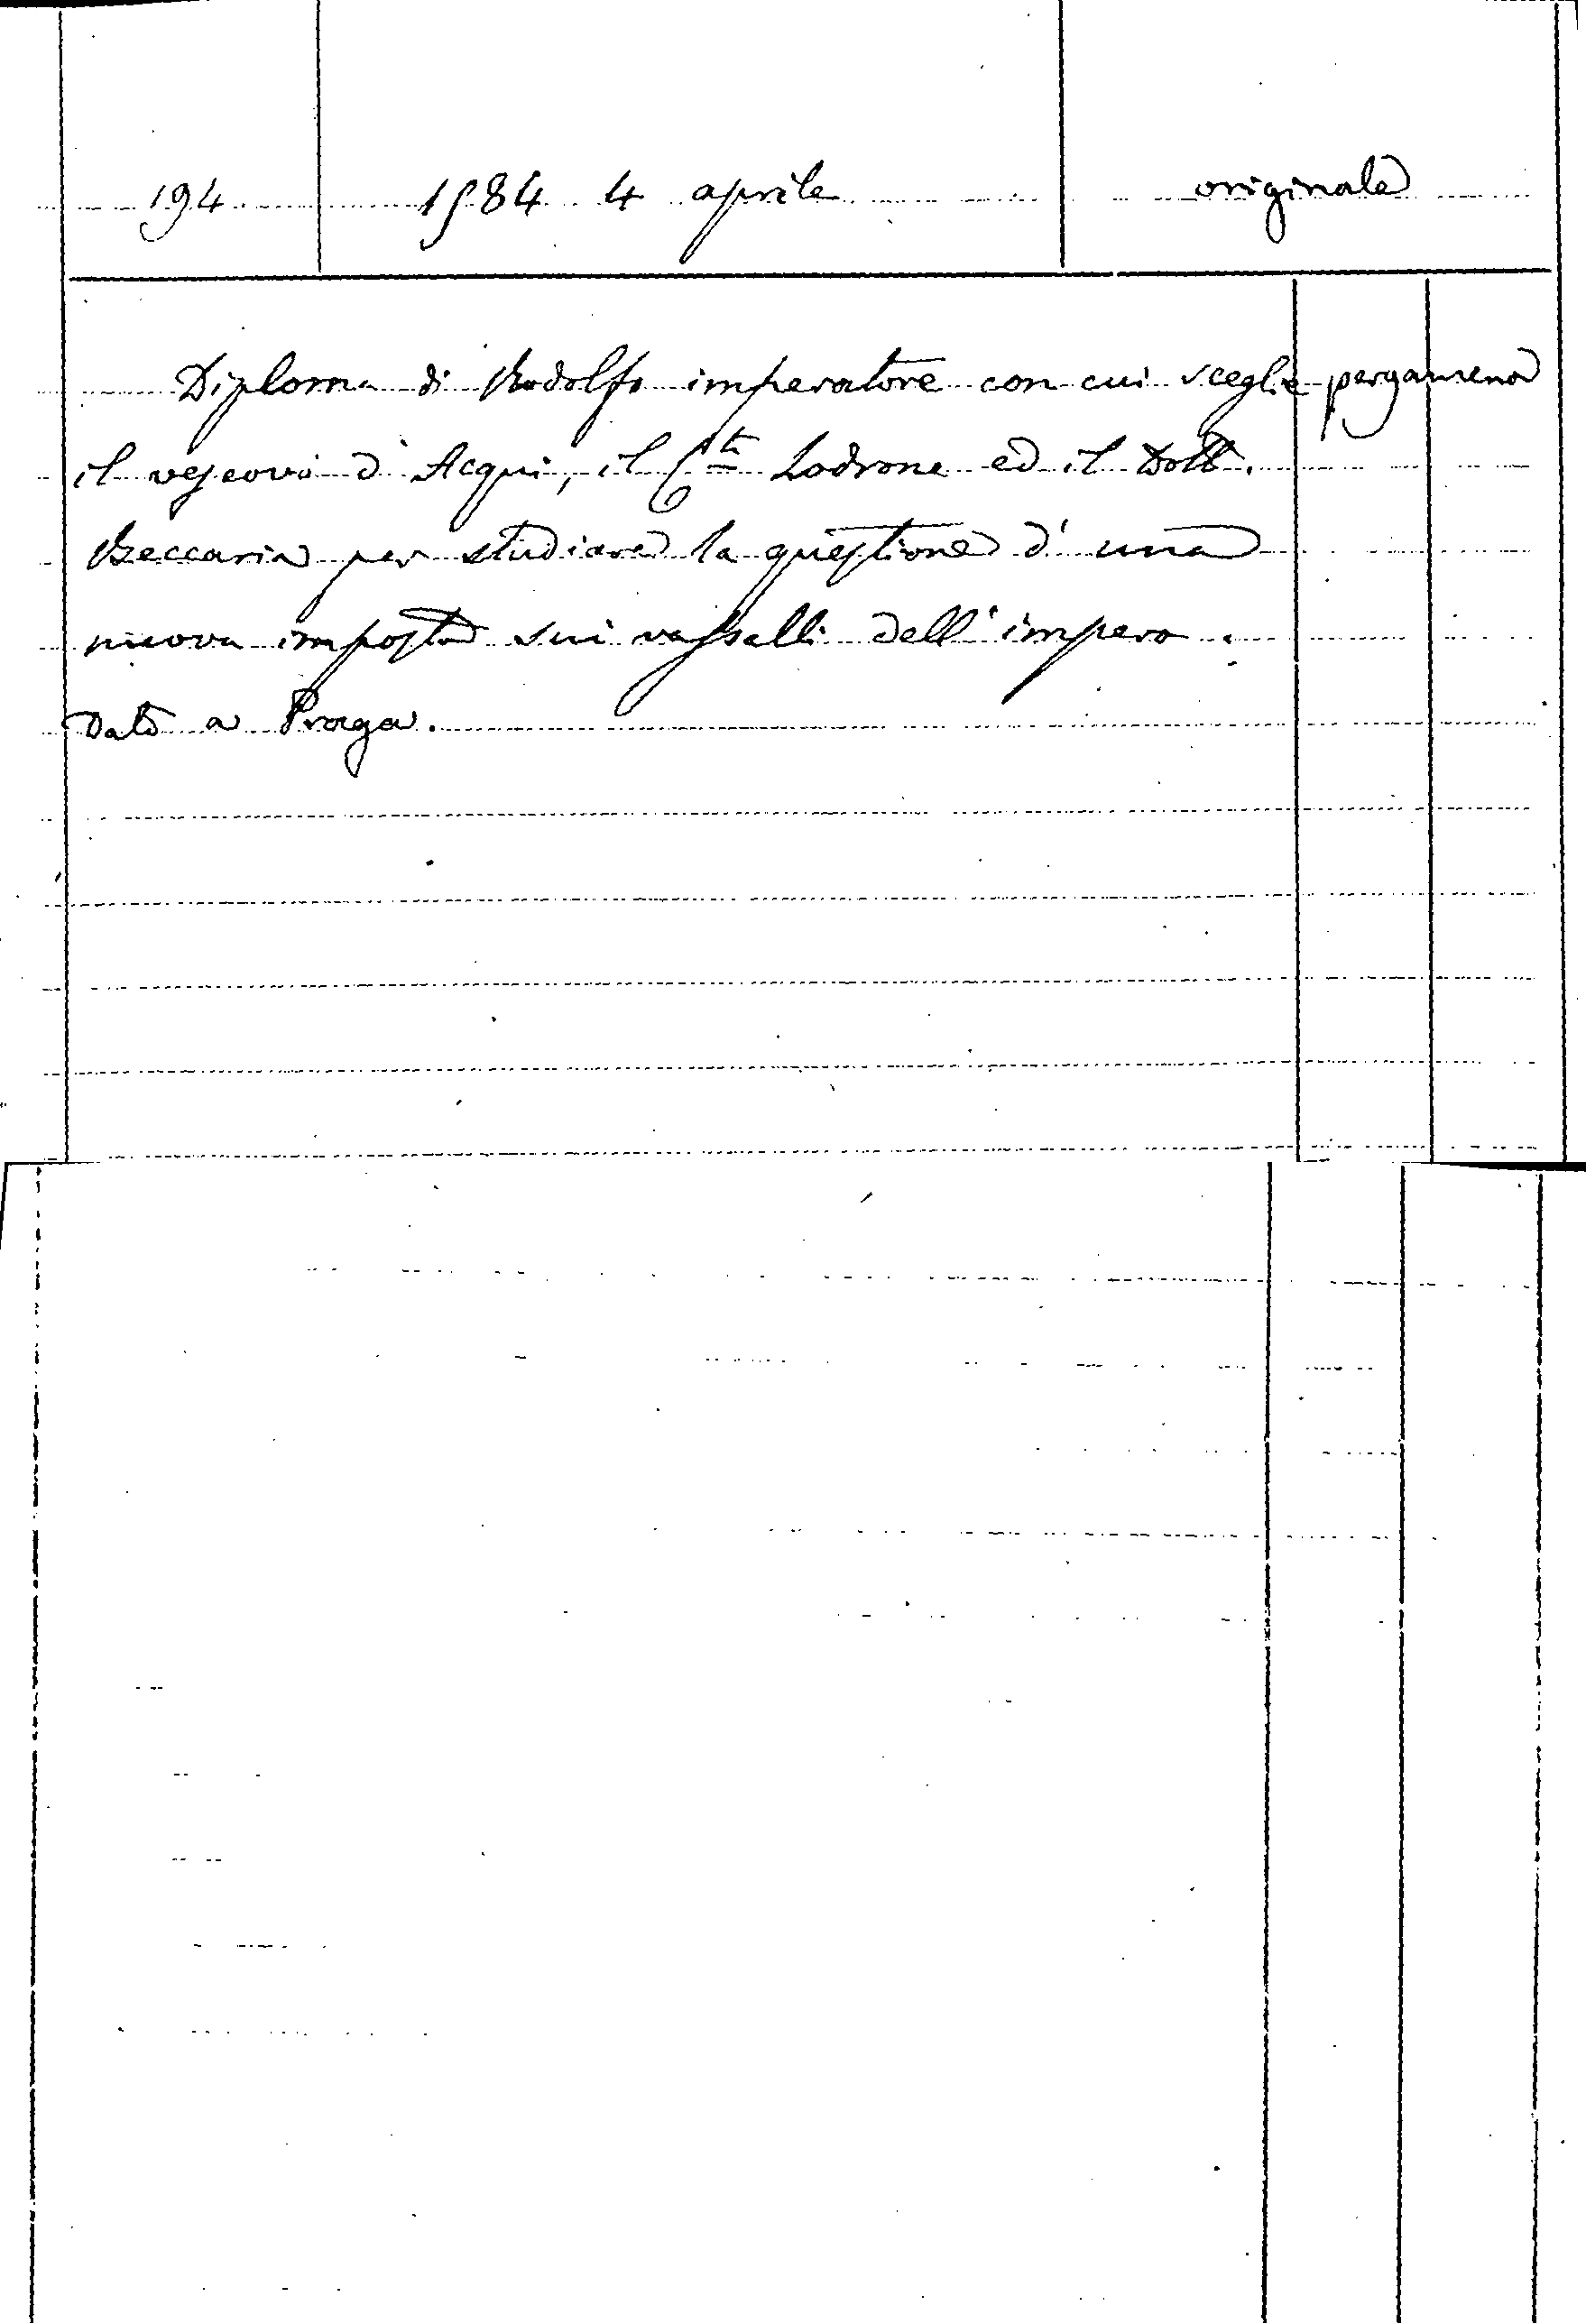 194 1584 4 aprile originale
Diploma di Rodolfo imperatore con cui sceglie pergamena
il vescovo d'Acqui, il C.te Lodrone ed il Dott.
Beccaria per studiare la questione d'una
nuova imposta sui vassalli dell'impero.
Dato a Praga.